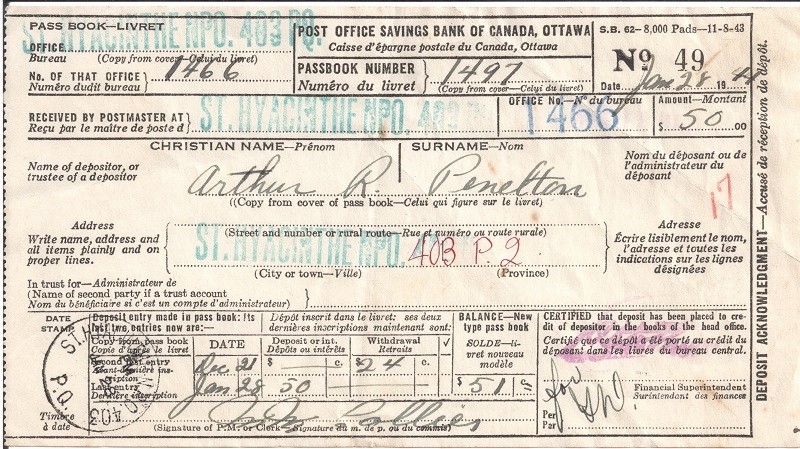 PASS BOOK—LIVRET
OFFICE
Bureau
ST. HYACINTHE NPO. 403 PQ.
(Copy from cover—Celui du livret)
No. OF THAT OFFICE
Numéro dudit bureau
1466
POST OFFICE SAVINGS BANK OF CANADA, OTTAWA
Caisse d'épargne postale du Canada, Ottawa
PASSBOOK NUMBER
Numéro du livret
1497
(Copy from cover—Celui du livret)
S.B. 62-8,000 Pads—11-8-43
No 49
Date Jan 28 1944
RECEIVED BY POSTMASTER AT
Reçu par le maître de poste d
ST. HYACINTHE NPO. 403
OFFICE No.—No du bureau
1466
Amount—Montant
$ 50 .00
CHRISTIAN NAME—Prénom
SURNAME—Nom
Name of depositor, or
trustee of a depositor
Arthur R. Penelton
((Copy from cover of pass book—Celui qui figure sur le livret)
Nom du déposant ou de
l'administrateur du
déposant
17
Address
Write name, address and
all items plainly and on
proper lines.
(Street and number or rural route—Rue et numéro ou route rurale)
ST. HYACINTHE NPO. 403 P.Q.
(City or town—Ville)
(Province)
Adresse
Écrire lisiblement le nom,
l'adresse et toutes les
indications sur les lignes
désignées
In trust for—Administrateur de
(Name of second party if a trust account)
Nom du bénéficiaire si c'est un compte d'administrateur)
DATE
STAMP
Timbre
à date
403
P.Q.
Deposit entry made in pass book: Its
last two entries now are:—
Dépôt inscrit dans le livret: ses deux
dernières inscriptions maintenant sont:
Copy from pass book
Copie d'après le livret
DATE
Deposit or int.
Dépôts ou intérêts
Withdrawal
Retraits
√
Second last entry
Avant-dernière inscription
Dec 21
$ — c.
$ 24 c.
Last entry
Dernière inscription
Jan 28
50
(Signature of P.M. or Clerk—Signature du m. de p. ou du commis)
BALANCE—New
type pass book
SOLDE—livret nouveau
modèle
$ 51
CERTIFIED that deposit has been placed to
credit of depositor in the books of the head office.
Certifié que ce dépôt a été porté au crédit du
déposant dans les livres du bureau central.
Financial Superintendent
Surintendant des finances
Per
Par
DEPOSIT ACKNOWLEDGMENT—Accusé de réception de dépôt.